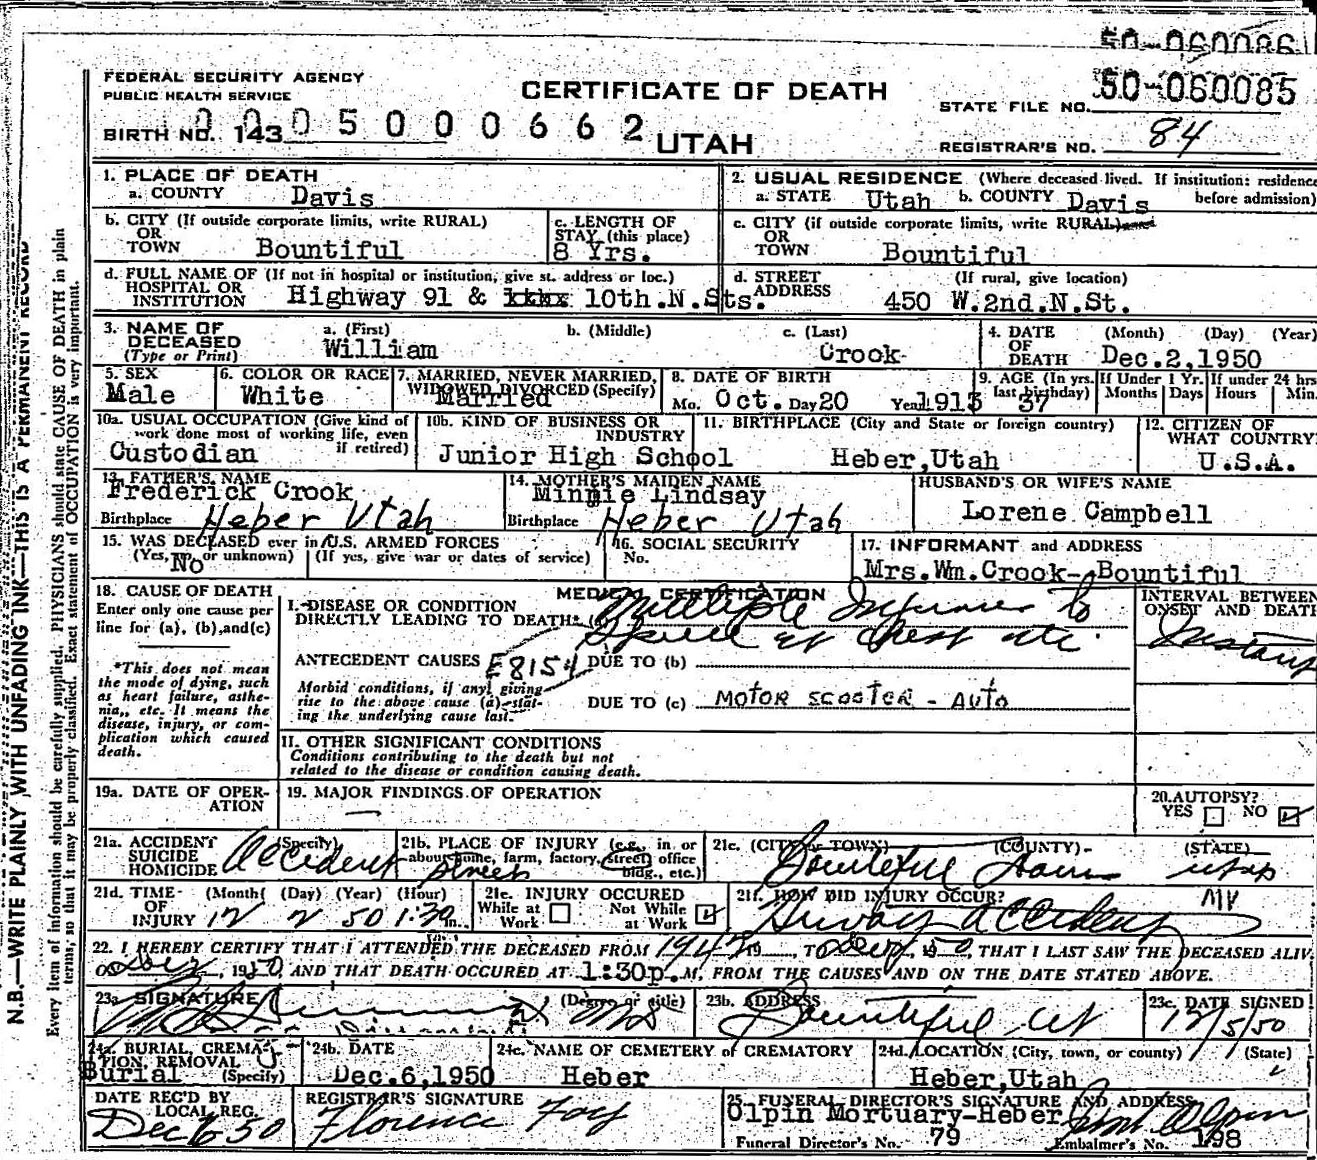 50-060086
FEDERAL SECURITY AGENCY
PUBLIC HEALTH SERVICE
CERTIFICATE OF DEATH
STATE FILE NO. 50-060085
BIRTH NO. 143 0005000662
UTAH
REGISTRAR'S NO. 84
1. PLACE OF DEATH
a. COUNTY Davis
2. USUAL RESIDENCE (Where deceased lived. If institution: residence before admission)
a. STATE Utah b. COUNTY Davis
b. CITY (If outside corporate limits, write RURAL)
OR
TOWN Bountiful
c. LENGTH OF
STAY (this place)
8 Yrs.
c. CITY (if outside corporate limits, write RURAL)
OR
TOWN Bountiful
d. FULL NAME OF (If not in hospital or institution, give st. address or loc.)
HOSPITAL OR
INSTITUTION Highway 91 & 10th.N.Sts.
d. STREET (If rural, give location)
ADDRESS 450 W.2nd.N.St.
3. NAME OF
DECEASED
(Type or Print)
a. (First) b. (Middle) c. (Last)
William Crook
4. DATE (Month) (Day) (Year)
OF
DEATH Dec.2,1950
5. SEX
Male
6. COLOR OR RACE
White
7. MARRIED, NEVER MARRIED,
WIDOWED DIVORCED (Specify)
Married
8. DATE OF BIRTH
Mo. Oct. Day 20 Year 1913
9. AGE (In yrs. last birthday) 37
If Under 1 Yr. Months Days
If under 24 hrs Hours Min.
10a. USUAL OCCUPATION (Give kind of
work done most of working life, even
if retired)
Custodian
10b. KIND OF BUSINESS OR
INDUSTRY
Junior High School
11. BIRTHPLACE (City and State or foreign country)
Heber,Utah
12. CITIZEN OF
WHAT COUNTRY
U.S.A.
13. FATHER'S NAME
Frederick Crook
Birthplace Heber Utah
14. MOTHER'S MAIDEN NAME
Minnie Lindsay
Birthplace Heber Utah
HUSBAND'S OR WIFE'S NAME
Lorene Campbell
15. WAS DECEASED ever in U.S. ARMED FORCES
(Yes, no, or unknown) (If yes, give war or dates of service)
No
16. SOCIAL SECURITY
No.
17. INFORMANT and ADDRESS
Mrs.Wm.Crook- Bountiful
18. CAUSE OF DEATH
Enter only one cause per
line for (a), (b),and(c)
*This does not mean
the mode of dying, such
as heart failure, asthe-
nia,, etc. It means the
disease, injury, or com-
plication which caused
death.
MEDICAL CERTIFICATION
I. DISEASE OR CONDITION
DIRECTLY LEADING TO DEATH* (a) Multiple Injuries to
Skull & Chest etc.
INTERVAL BETWEEN
ONSET AND DEATH
ANTECEDENT CAUSES E8154 DUE TO (b)
Morbid conditions, if any, giving
rise to the above cause (a) stat-
ing the underlying cause last.
DUE TO (c) MOTOR SCOOTER - AUTO
II. OTHER SIGNIFICANT CONDITIONS
Conditions contributing to the death but not
related to the disease or condition causing death.
19a. DATE OF OPER-
ATION
19. MAJOR FINDINGS OF OPERATION
20. AUTOPSY?
YES NO
21a. ACCIDENT
SUICIDE
HOMICIDE
(Specify)
Accident
21b. PLACE OF INJURY (e.g., in or
about home, farm, factory, street, office
bldg., etc.)
Street
21c. (CITY or TOWN) (COUNTY) (STATE)
Bountiful Davis Utah
21d. TIME (Month) (Day) (Year) (Hour)
OF
INJURY 12 2 50 1:30 m.
21e. INJURY OCCURED
While at Work Not While at Work
21f. HOW DID INJURY OCCUR? MV
Hiway accident
22. I HEREBY CERTIFY THAT I ATTENDED THE DECEASED FROM 1947 19 , TO Dec, 1950, THAT I LAST SAW THE DECEASED ALIVE
ON , 1950, AND THAT DEATH OCCURED AT 1:30p.M, FROM THE CAUSES AND ON THE DATE STATED ABOVE.
23a. SIGNATURE (Degree or title)
23b. ADDRESS
Bountiful Ut
23c. DATE SIGNED
12/5/50
24a. BURIAL, CREMA-
TION REMOVAL
Burial (Specify)
24b. DATE
Dec.6,1950
24c. NAME OF CEMETERY or CREMATORY
Heber
24d. LOCATION (City, town, or county) (State)
Heber,Utah
DATE REC'D BY
LOCAL REG.
Dec 6 50
REGISTRAR'S SIGNATURE
Florence Foy
25. FUNERAL DIRECTOR'S SIGNATURE AND ADDRESS
Olpin Mortuary-Heber
Funeral Director's No. 79 Embalmer's No. 198
N.B.—WRITE PLAINLY WITH UNFADING INK—THIS IS A PERMANENT RECORD
Every item of information should be carefully supplied. PHYSICIANS should state CAUSE OF DEATH in plain
terms, so that it may be properly classified. Exact statement of OCCUPATION is very important.